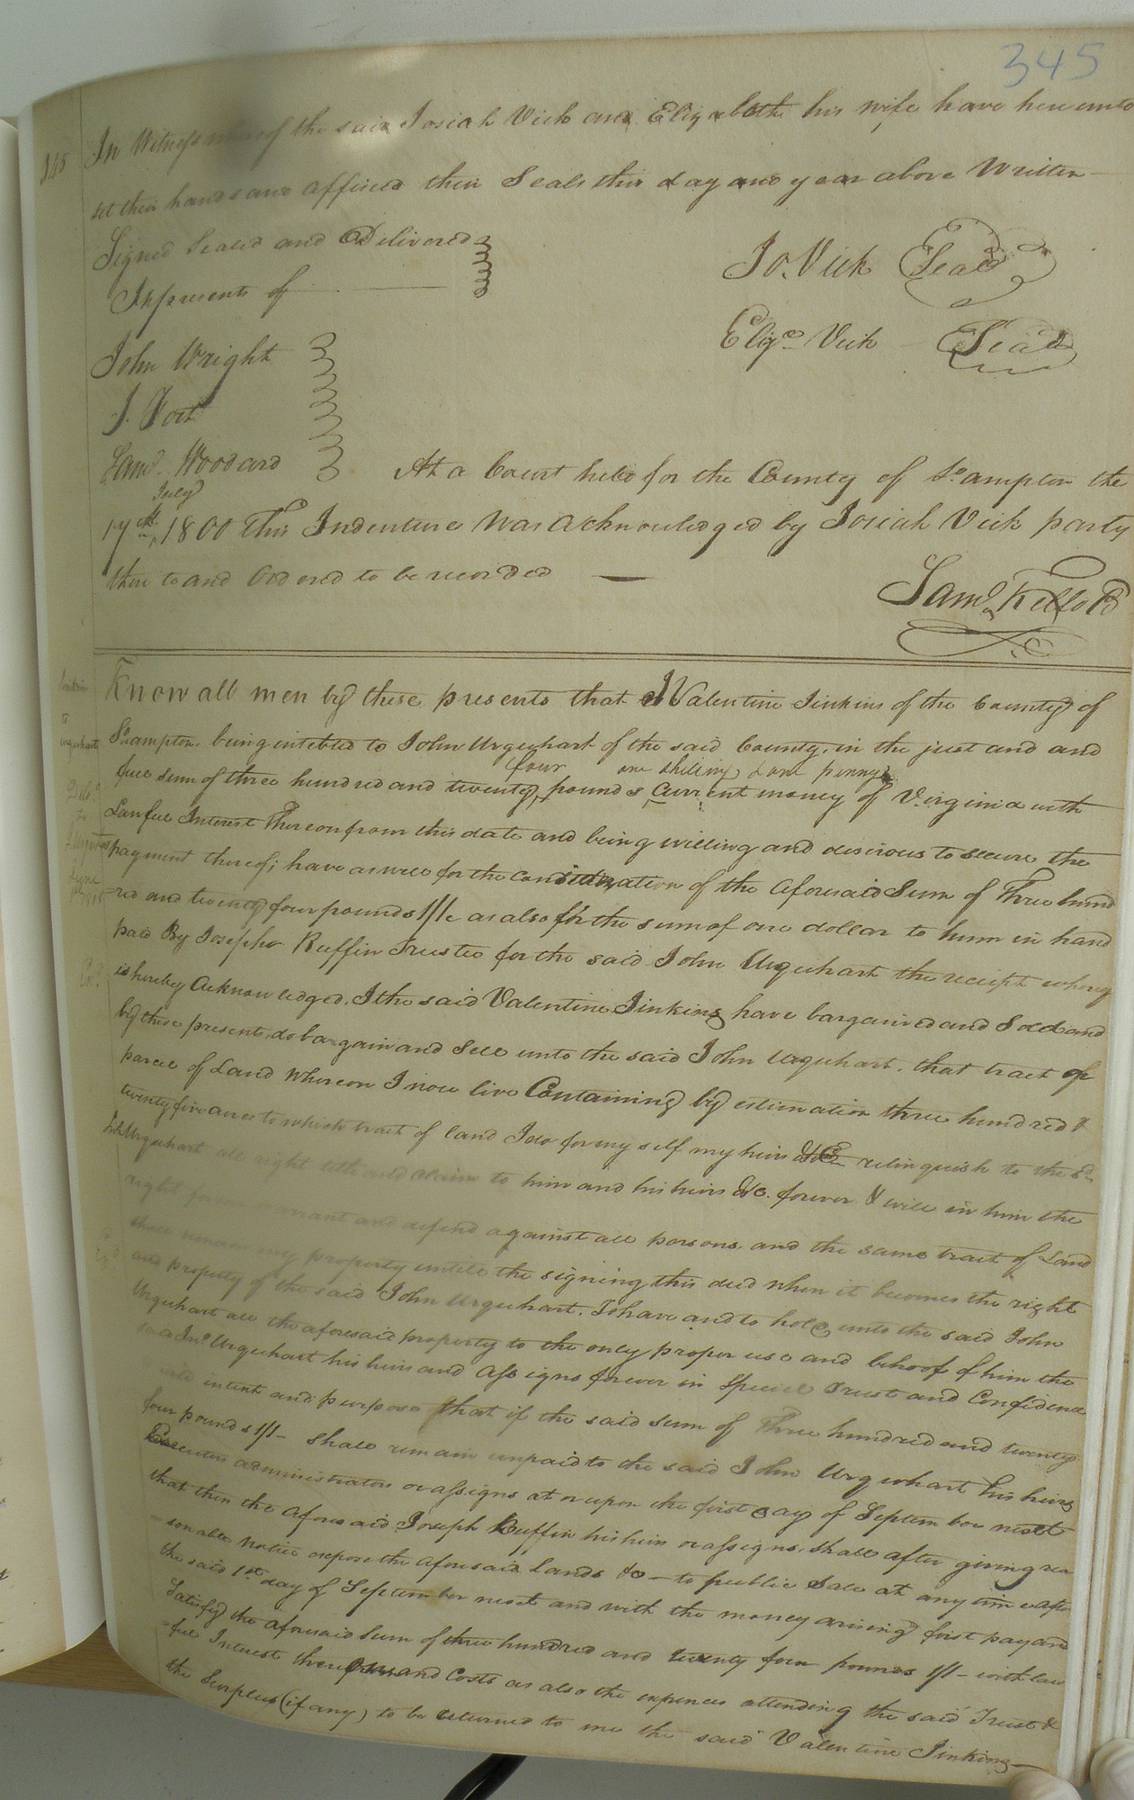 345
345
In Witness whereof the said Josiah Vick and Elizabeth his wife have hereunto
set their hands and affixed their Seals this day and year above Written
Signed Sealed and Delivered
In presents of
Jo. Vick Seal
Eliza Vick Seal
John Wright
J. Fort
Saml. Woodard At a Court held for the County of So.ampton the
July
17th, 1800 This Indenture was acknowledged by Josiah Vick party
there to and Ordered to be recorded
Saml. Kello
Jinkins
to
Urquhart
Know all men by these presents that I Valentine Jinkins of the County of
So.ampton being intebted to John Urquhart of the said County, in the just and and
four one shilling & one penny
full sum of three hundred and twenty, pounds Current money of Virginia with
Lawful Interest Thereon from this date and being willing and desirous to secure the
payment thereof; have as well for the consideration of the aforesaid Sum of Three hund
red and twenty four pounds 1/1 as also for the sum of one dollar to him in hand
paid By Joseph Ruffin Trustee for the said John Urquhart the receipt whereof
is hereby Acknowledged, I the said Valentine Jinkins have bargained and Sold and
by these presents, do bargain and Sell unto the said John Urquhart, that tract or
parcel of Land whereon I now live Containing by estimation three hundred &
twenty five acres to which tract of land I do for my self my heirs &C relinquish to the Sd.
Joh Urquhart all right title and claim to him and his heirs &c. forever & will in him the
right forever warrant and defend against all persons and the same tract of Land
shall remain my property untill the signing this deed when it becomes the right
and property of the said John Urquhart. To have and to hold unto the said John
Urquhart all the aforesaid property to the only proper use and behoof of him the
said Jno. Urquhart his heirs and Assigns forever in Special Trust and Confidence
intent and purpose that if the said sum of Three hundred and twenty
four pounds 1/1 - shall remain unpaid to the said John Urquhart his heirs
Executors administrators or assigns at or upon the first day of September next
that then the aforesaid Joseph Ruffin his heirs or assigns, shall after giving rea
sonable notice expose the aforesaid Lands &c - to public Sale at any time after
the said 1st day of September next and with the money arising first pay and
Satisfy the aforesaid Sum of three hundred and twenty four pounds 1/1 - with law
ful Interest thereon and Costs as also the expences attending the said Trust &
the Surplus (if any) to be returned to me the said Valentine Jinkins